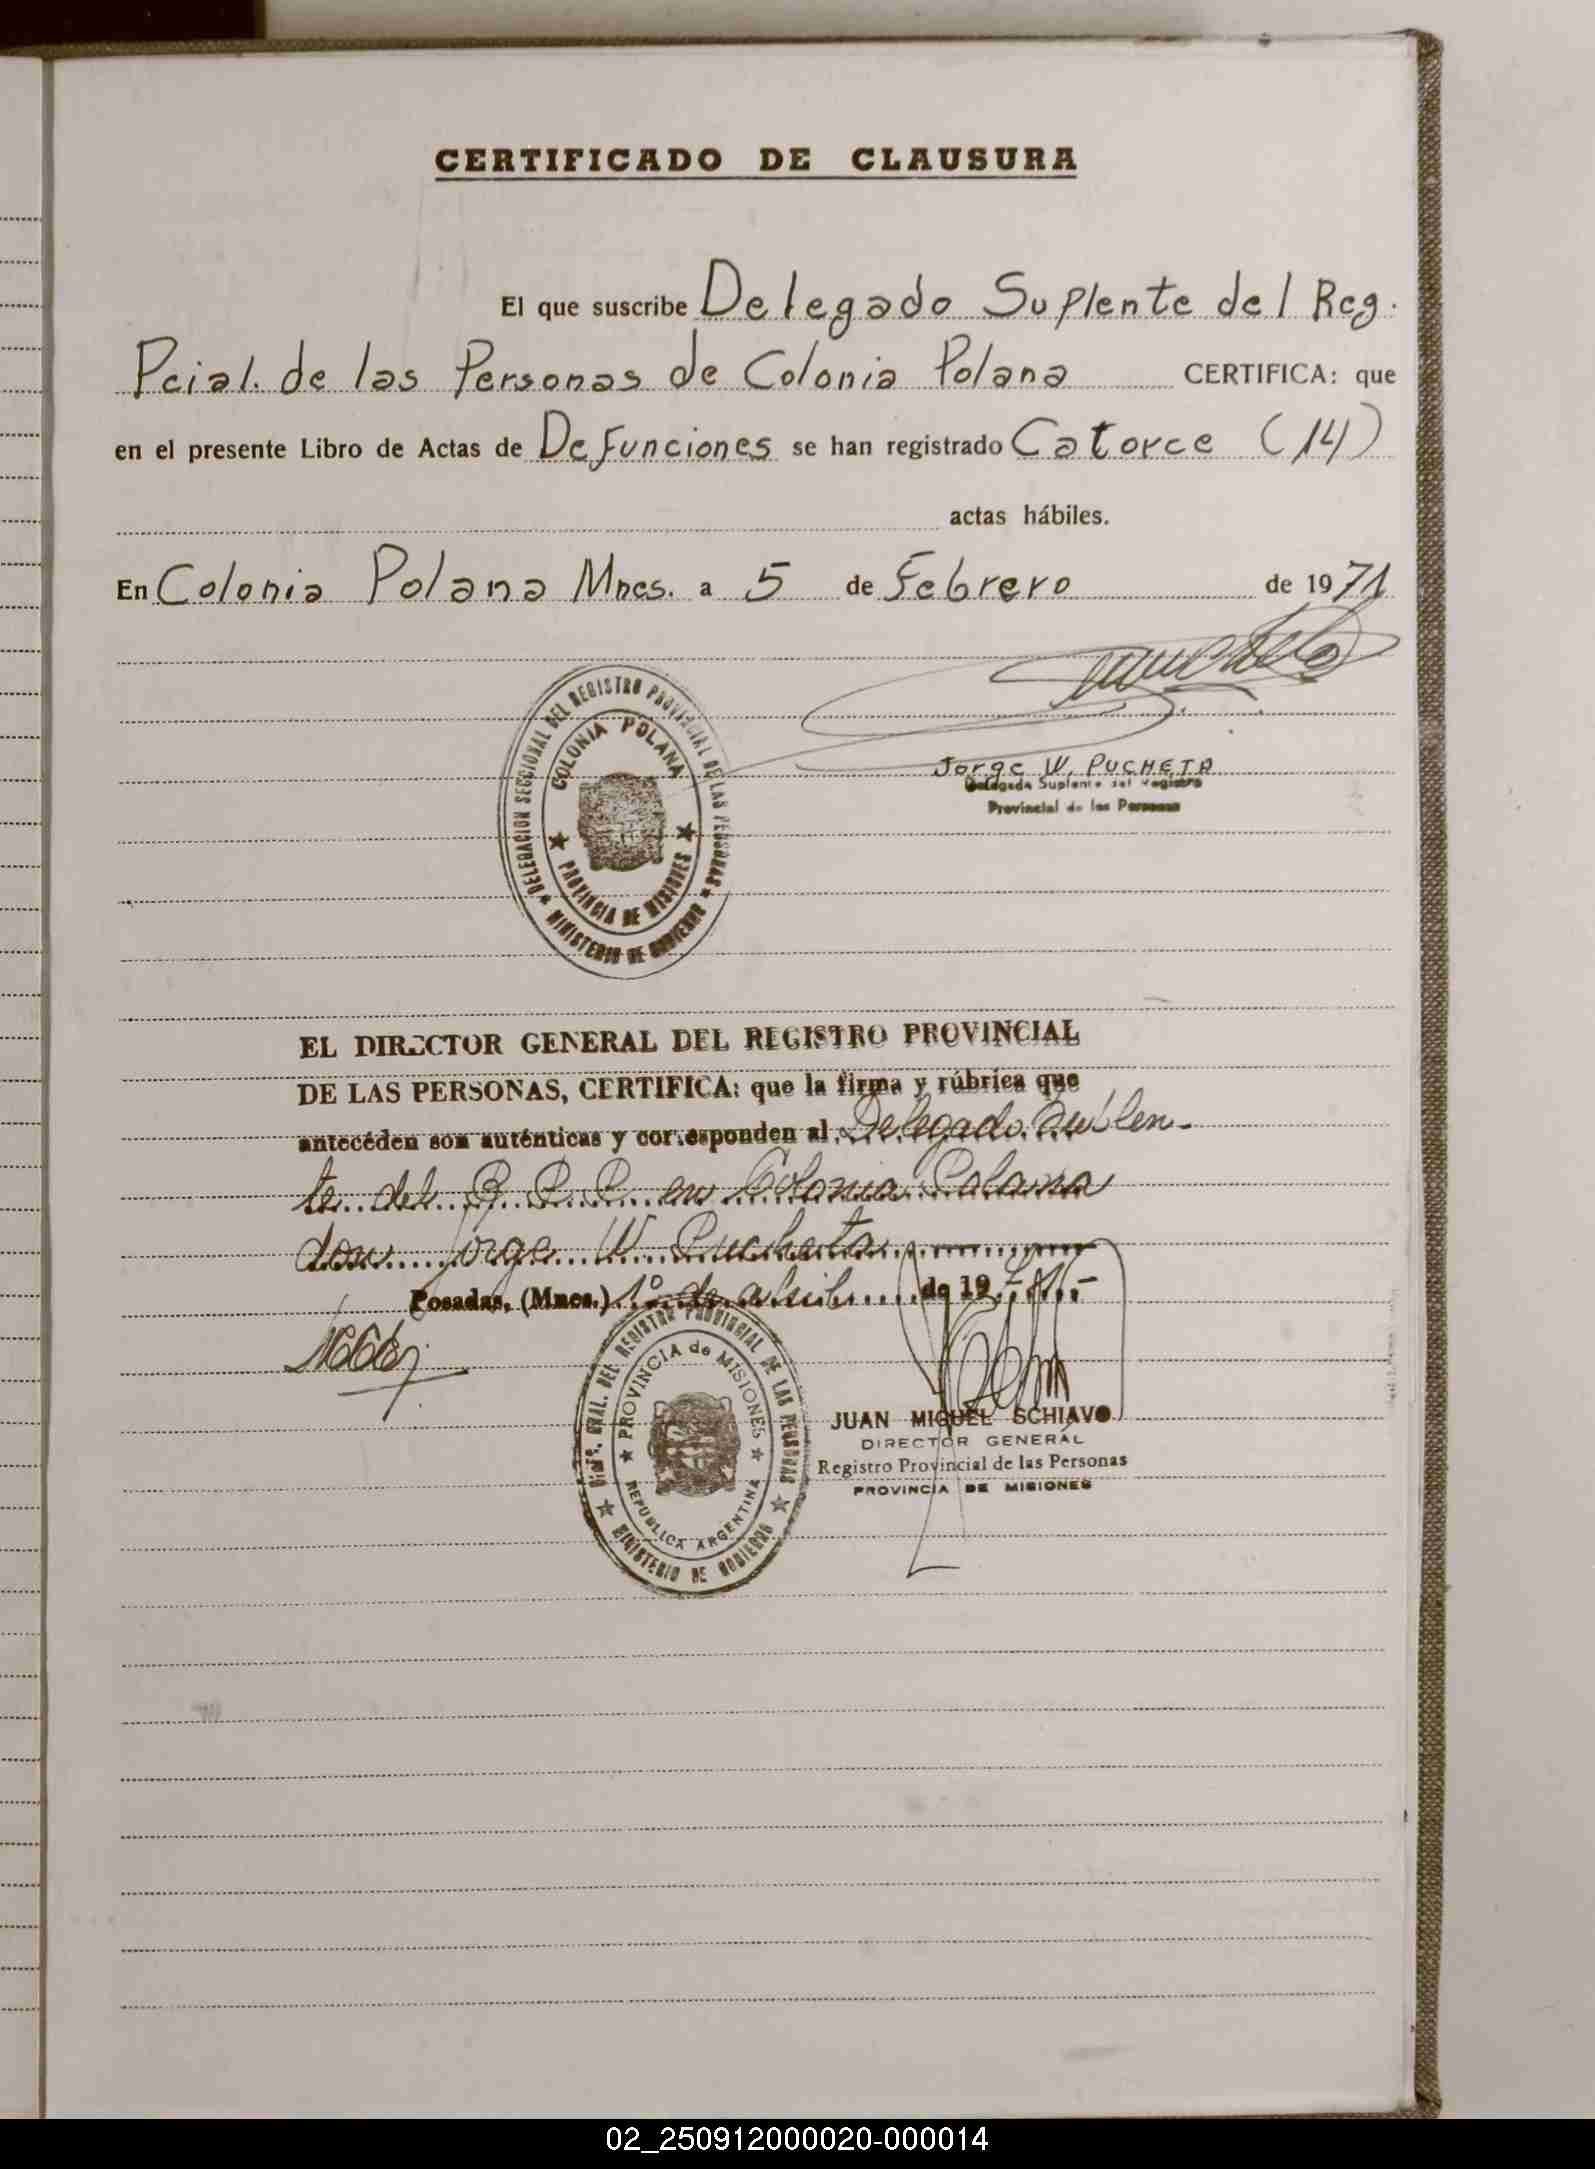 CERTIFICADO DE CLAUSURA
El que suscribe Delegado Suplente del Reg.
Pcial. de las Personas de Colonia Polana CERTIFICA: que
en el presente Libro de Actas de Defunciones se han registrado Catorce (14)
actas hábiles.
En Colonia Polana Mnes. a 5 de Febrero de 1971
Jorge W. PUCHETA
Delegado Suplente del Registro
Provincial de las Personas
DELEGACION SECCIONAL DEL REGISTRO PROVINCIAL DE LAS PERSONAS
COLONIA POLANA
PROVINCIA DE MISIONES
MINISTERIO DE GOBIERNO
EL DIRECTOR GENERAL DEL REGISTRO PROVINCIAL
DE LAS PERSONAS, CERTIFICA: que la firma y rúbrica que
anteceden son auténticas y corresponden al Delegado Suplen-
te del R. P. P. en Colonia Polana
don Jorge W. Pucheta
Posadas, (Mnes.) 1º de abril de 19
DIRº. GRAL. DEL REGISTRO PROVINCIAL DE LAS PERSONAS
PROVINCIA de MISIONES
REPUBLICA ARGENTINA
MINISTERIO DE GOBIERNO
JUAN MIGUEL SCHIAVO
DIRECTOR GENERAL
Registro Provincial de las Personas
PROVINCIA DE MISIONES
02_250912000020-000014